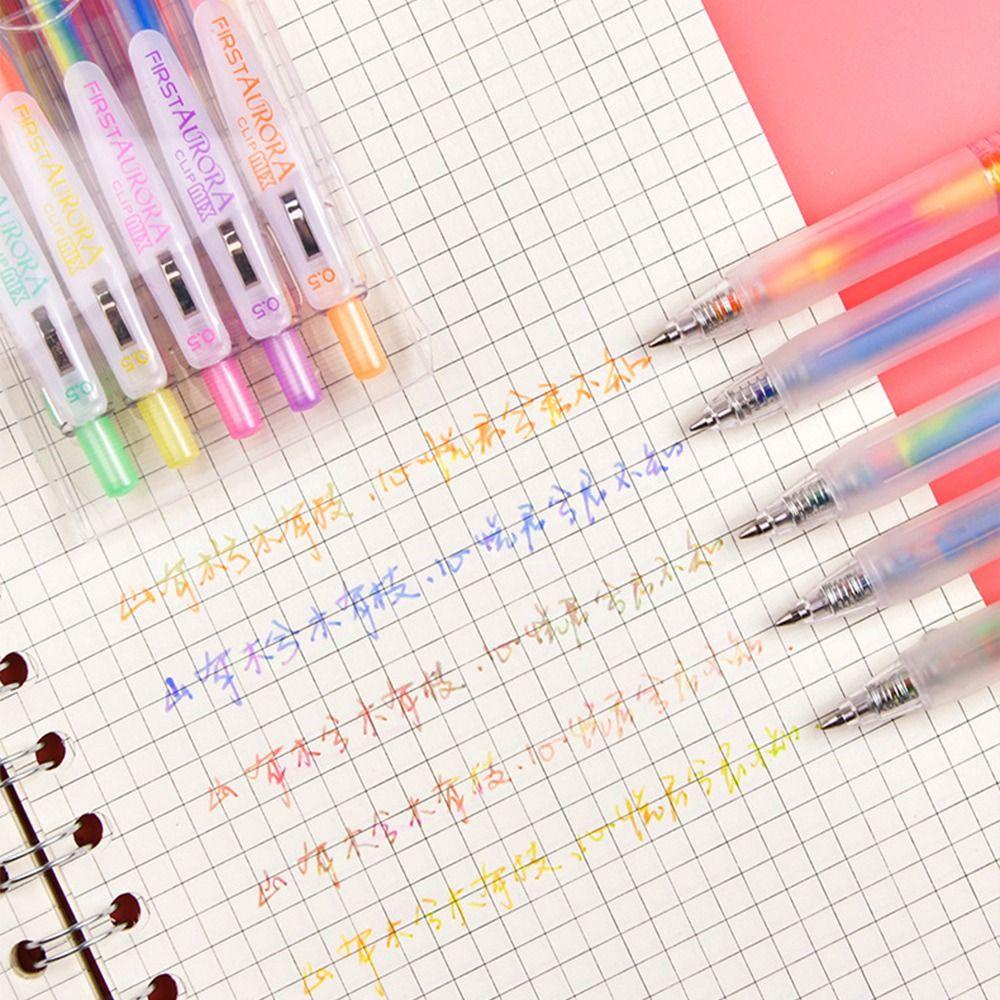 FIRST AURORA CLIP MIX 0.5
FIRST AURORA CLIP MIX 0.5
FIRST AURORA CLIP MIX 0.5
FIRST AURORA CLIP MIX 0.5
AURORA CLIP MIX 0.5
山有木兮木有枝.心悦君兮君不知
山有木兮木有枝.心悦君兮君不知
山有木兮木有枝.心悦君兮君不知
山有木兮木有枝.心悦君兮君不知.
山有木兮木有枝.心悦君兮君不知